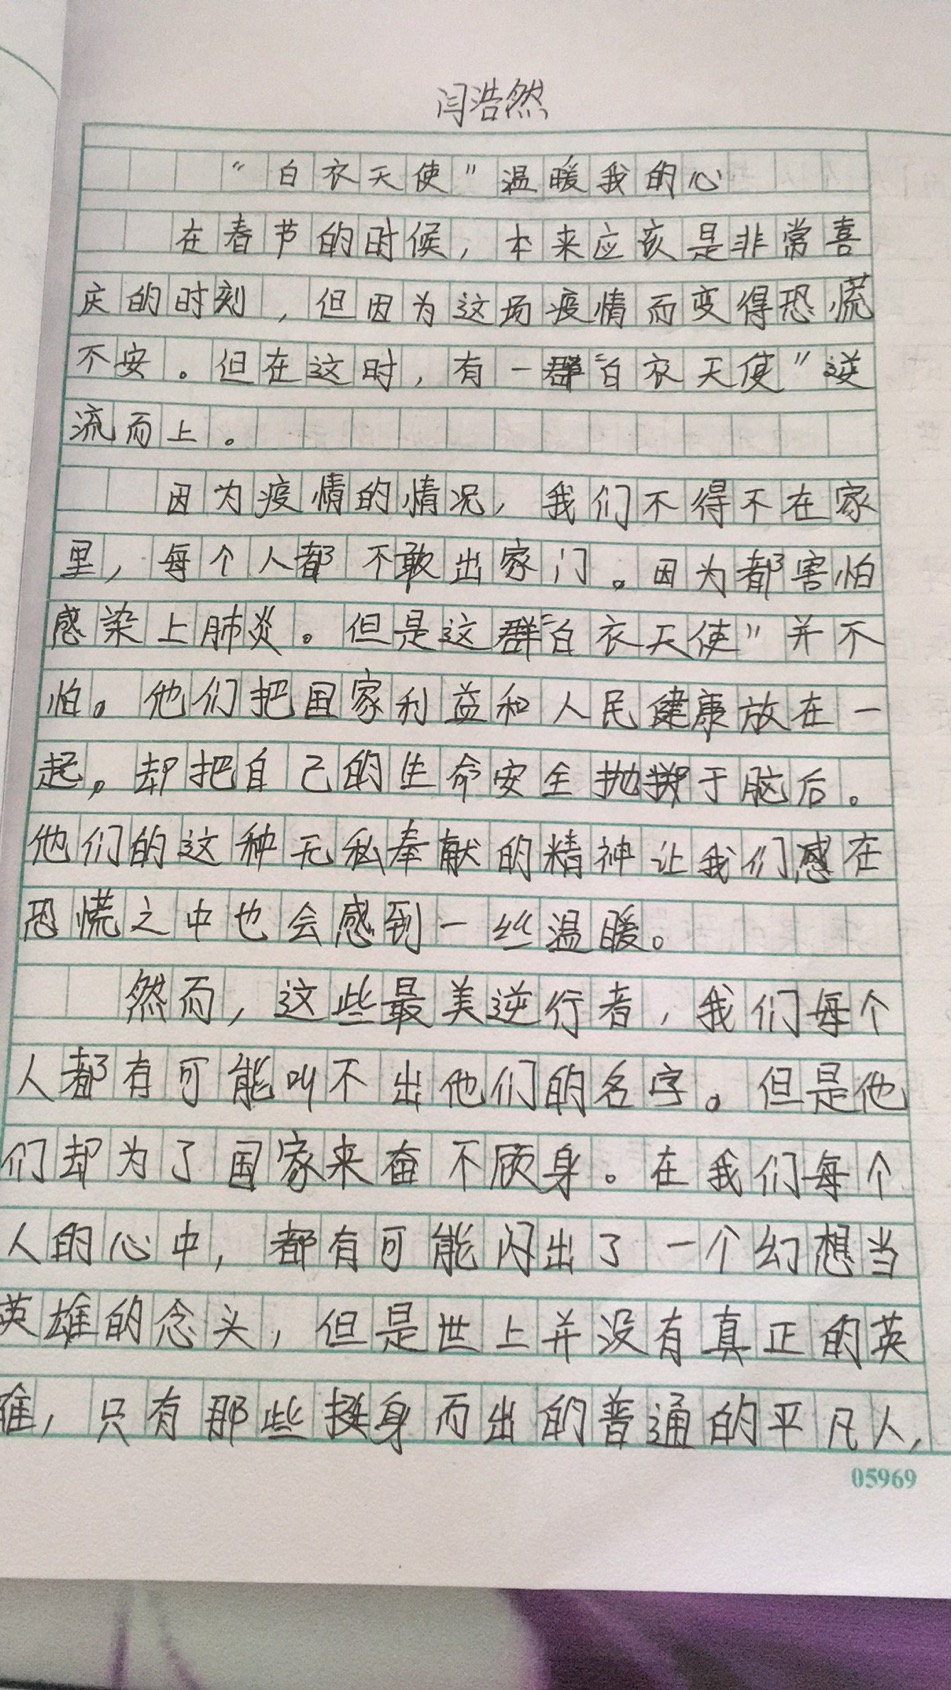 闫浩然
“白衣天使”温暖我的心
在春节的时候，本来应该是非常喜
庆的时刻，但因为这场疫情而变得恐慌
不安。但在这时，有一群“白衣天使”逆
流而上。
因为疫情的情况，我们不得不在家
里，每个人都不敢出家门。因为都害怕
感染上肺炎。但是这群“白衣天使”并不
怕。他们把国家利益和人民健康放在一
起。却把自己的生命安全抛掷于脑后。
他们的这种无私奉献的精神让我们感在
恐慌之中也会感到一丝温暖。
然而，这些最美逆行者，我们每个
人都有可能叫不出他们的名字。但是他
们却为了国家来奋不顾身。在我们每个
人的心中，都有可能闪出了一个幻想当
英雄的念头，但是世上并没有真正的英
雄，只有那些挺身而出的普通的平凡人，
05969